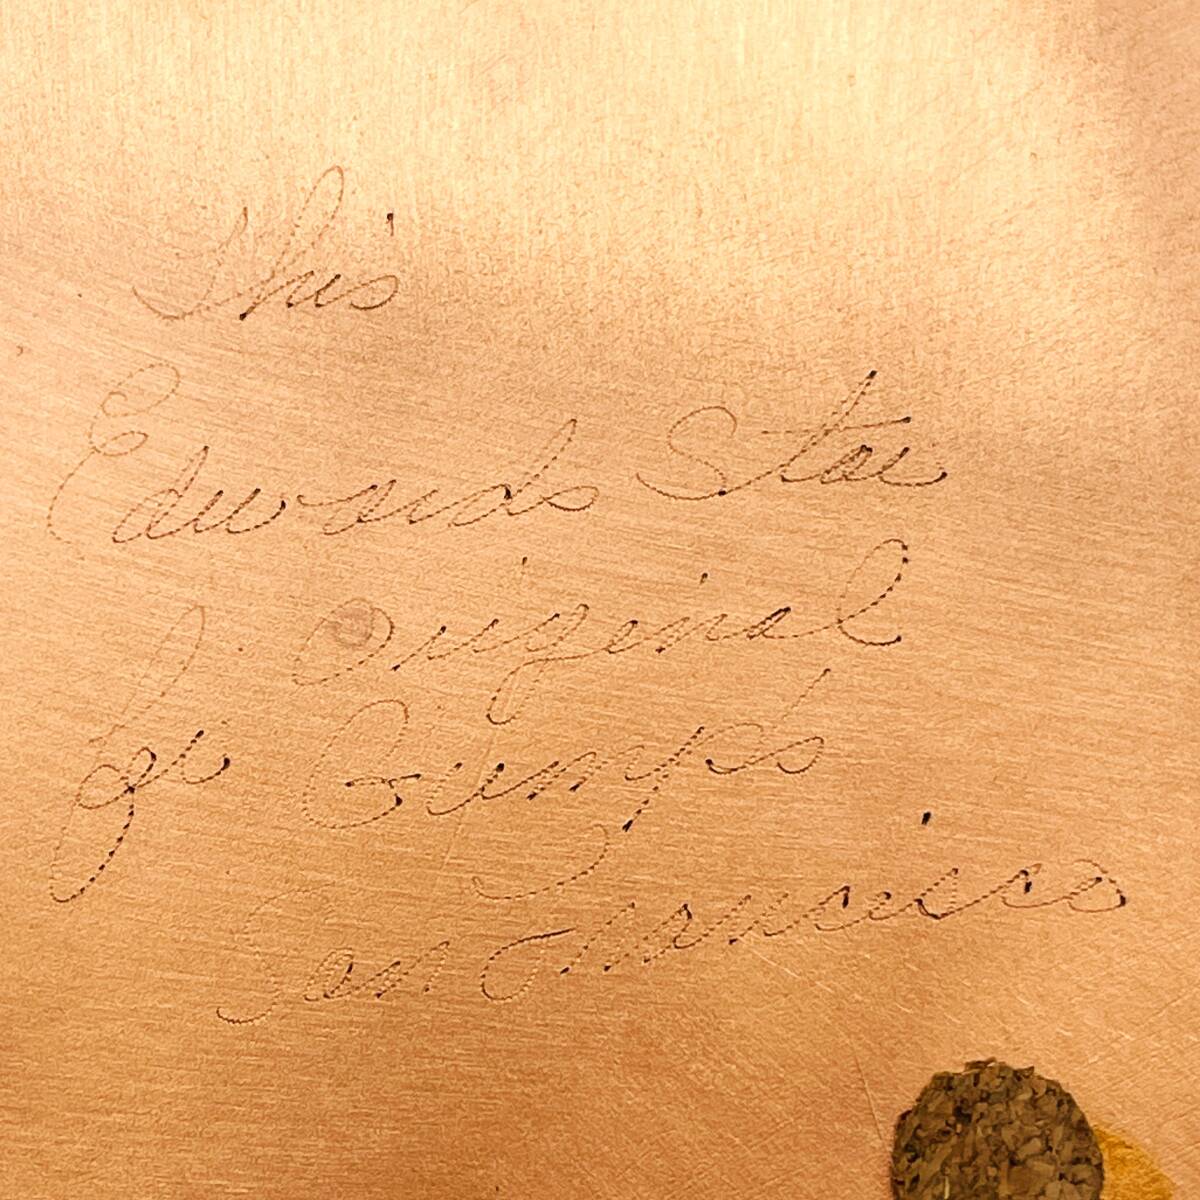 This
Edwards Star
Original
for Gump's
San Francisco